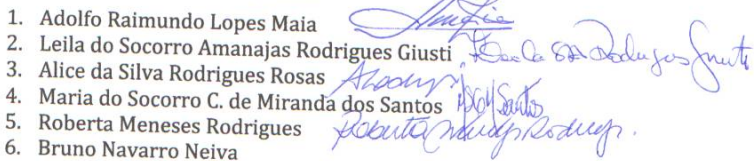 1. Adolfo Raimundo Lopes Maia
2. Leila do Socorro Amanajas Rodrigues Giusti
3. Alice da Silva Rodrigues Rosas
4. Maria do Socorro C. de Miranda dos Santos
5. Roberta Meneses Rodrigues
6. Bruno Navarro Neiva